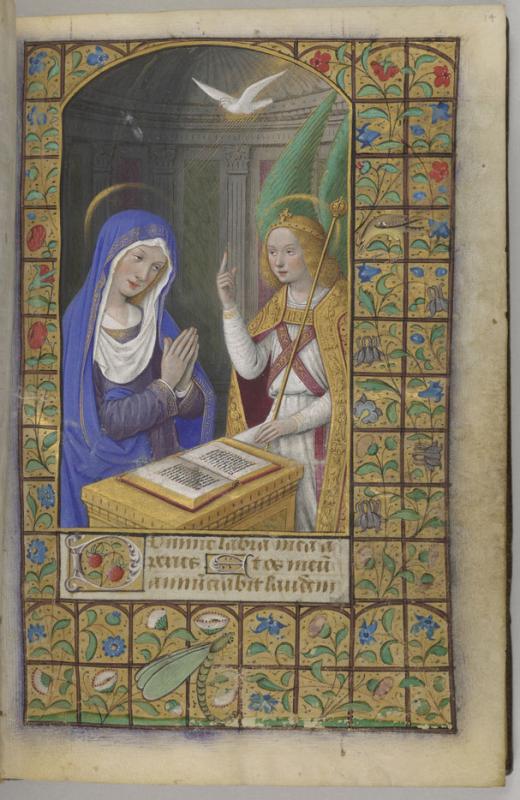 14
Domine labra mea a
peries Et os meū
annūciabit laudem